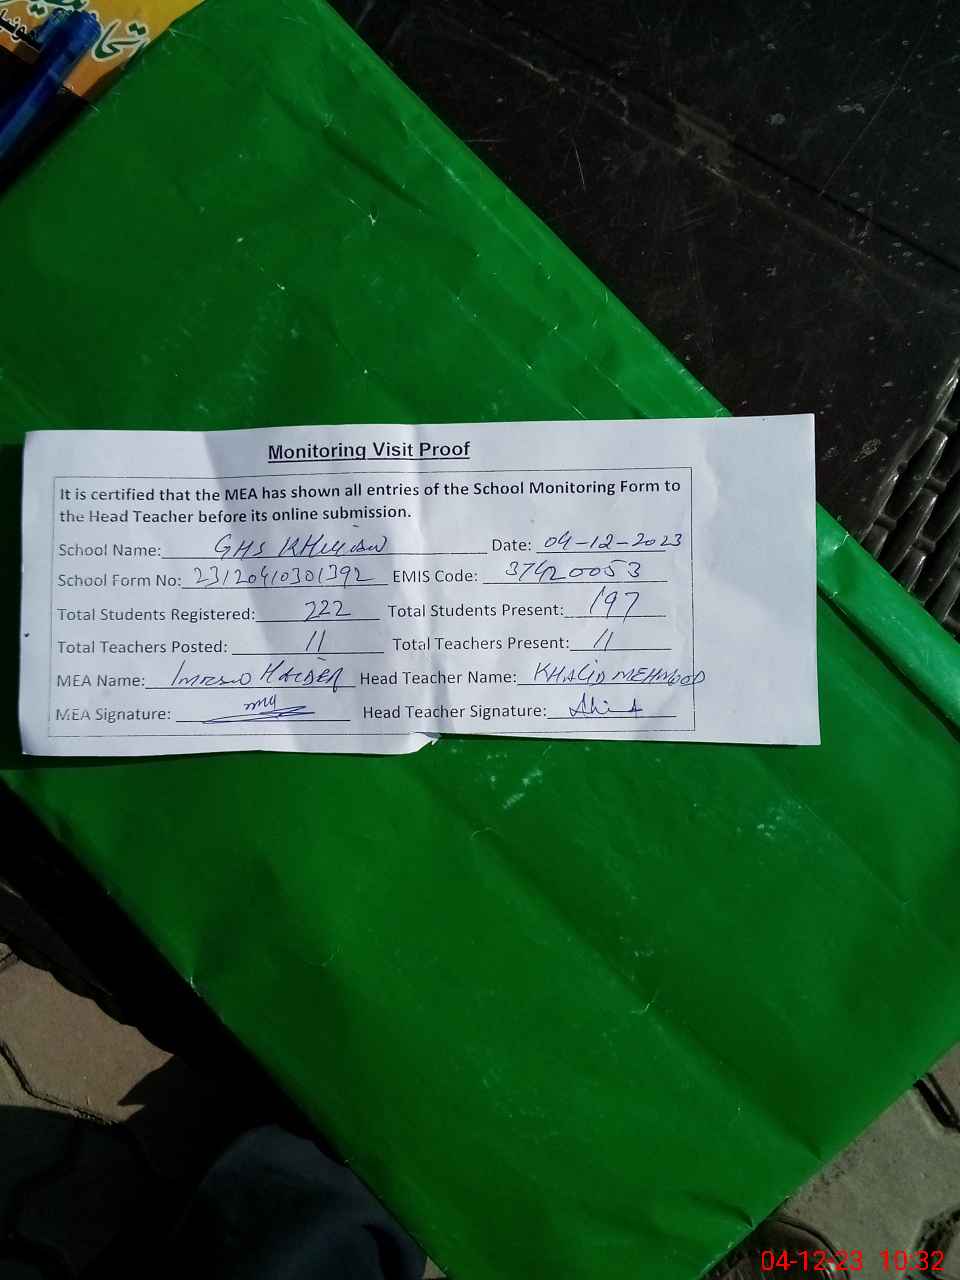 Monitoring Visit Proof
It is certified that the MEA has shown all entries of the School Monitoring Form to
the Head Teacher before its online submission.
School Name: GHS Date: 04-12-2023
School Form No: 23120410301392 EMIS Code: 37420053
Total Students Registered: 222 Total Students Present: 197
Total Teachers Posted: 11 Total Teachers Present: 11
MEA Name: HAIDER Head Teacher Name: KHALID MEHMOOD
MEA Signature: Head Teacher Signature:
04-12-23 10:32